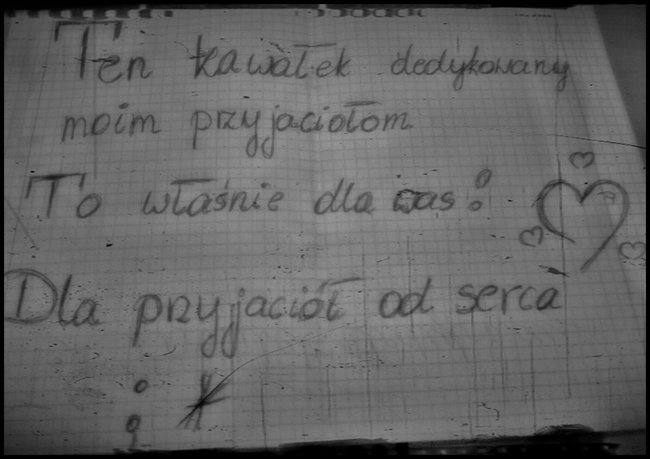 Ten kawałek dedykowany
moim przyjaciołom
To właśnie dla was
Dla przyjaciół od serca